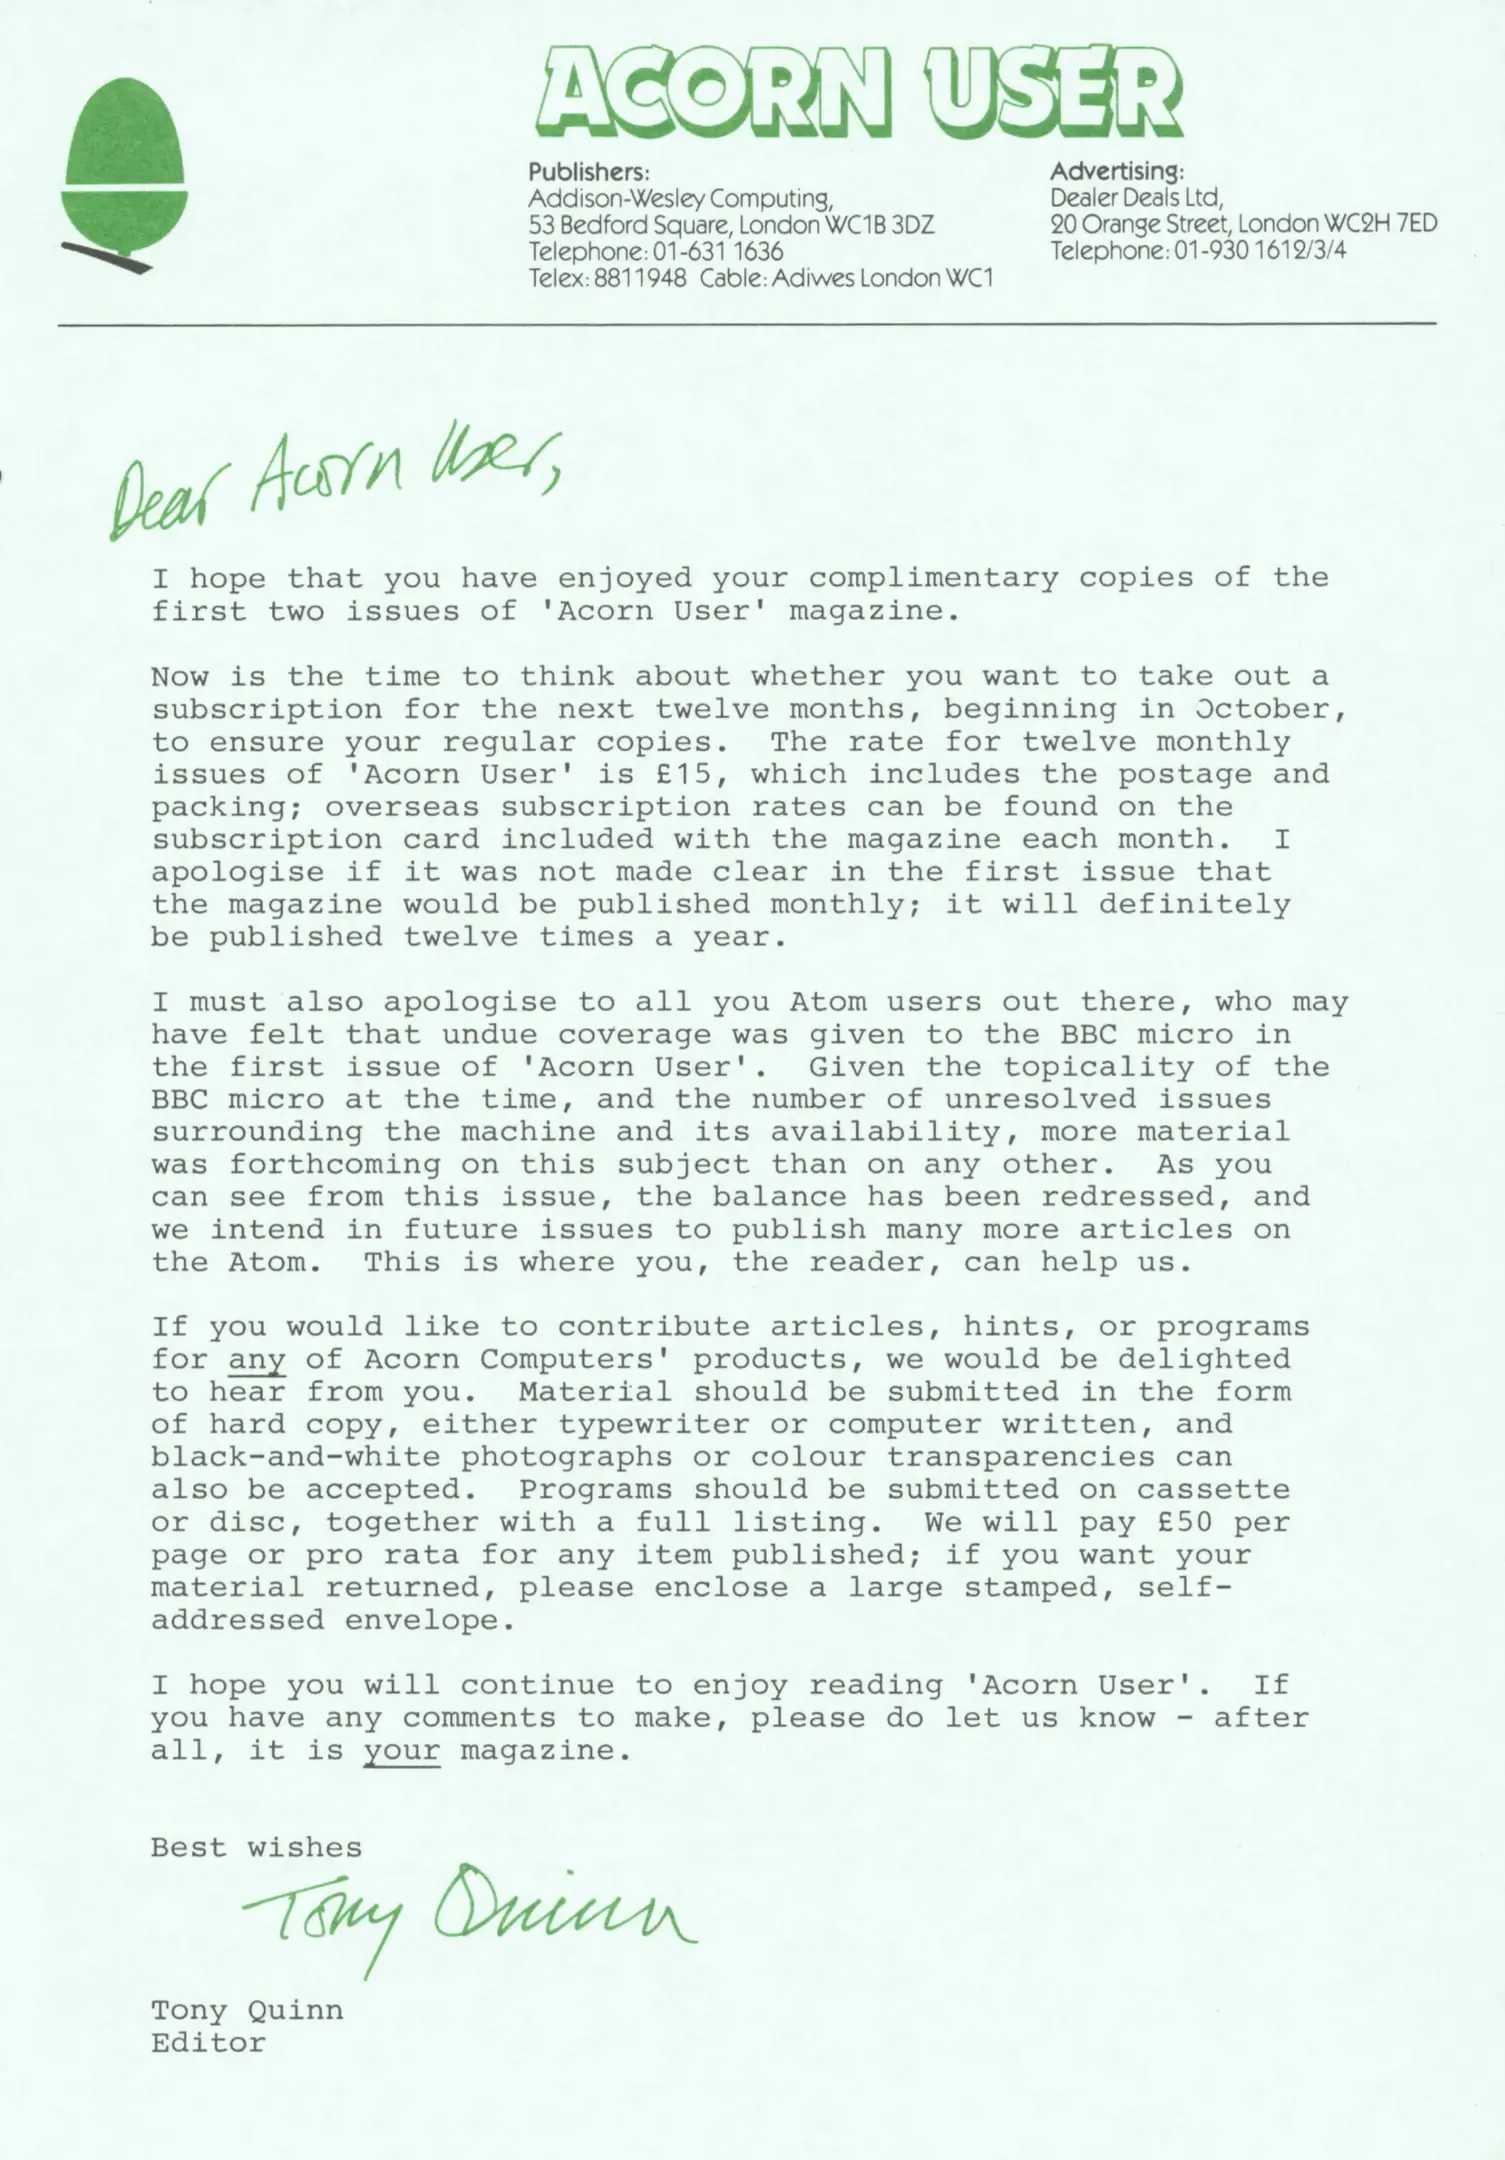 ACORN USER
Publishers:
Addison-Wesley Computing,
53 Bedford Square, London WC1B 3DZ
Telephone: 01-631 1636
Telex: 8811948 Cable: Adiwes London WC1
Advertising:
Dealer Deals Ltd,
20 Orange Street, London WC2H 7ED
Telephone: 01-930 1612/3/4
Dear Acorn User,
I hope that you have enjoyed your complimentary copies of the
first two issues of 'Acorn User' magazine.
Now is the time to think about whether you want to take out a
subscription for the next twelve months, beginning in October,
to ensure your regular copies. The rate for twelve monthly
issues of 'Acorn User' is £15, which includes the postage and
packing; overseas subscription rates can be found on the
subscription card included with the magazine each month. I
apologise if it was not made clear in the first issue that
the magazine would be published monthly; it will definitely
be published twelve times a year.
I must also apologise to all you Atom users out there, who may
have felt that undue coverage was given to the BBC micro in
the first issue of 'Acorn User'. Given the topicality of the
BBC micro at the time, and the number of unresolved issues
surrounding the machine and its availability, more material
was forthcoming on this subject than on any other. As you
can see from this issue, the balance has been redressed, and
we intend in future issues to publish many more articles on
the Atom. This is where you, the reader, can help us.
If you would like to contribute articles, hints, or programs
for any of Acorn Computers' products, we would be delighted
to hear from you. Material should be submitted in the form
of hard copy, either typewriter or computer written, and
black-and-white photographs or colour transparencies can
also be accepted. Programs should be submitted on cassette
or disc, together with a full listing. We will pay £50 per
page or pro rata for any item published; if you want your
material returned, please enclose a large stamped, self-
addressed envelope.
I hope you will continue to enjoy reading 'Acorn User'. If
you have any comments to make, please do let us know - after
all, it is your magazine.
Best wishes
Tony Quinn
Tony Quinn
Editor